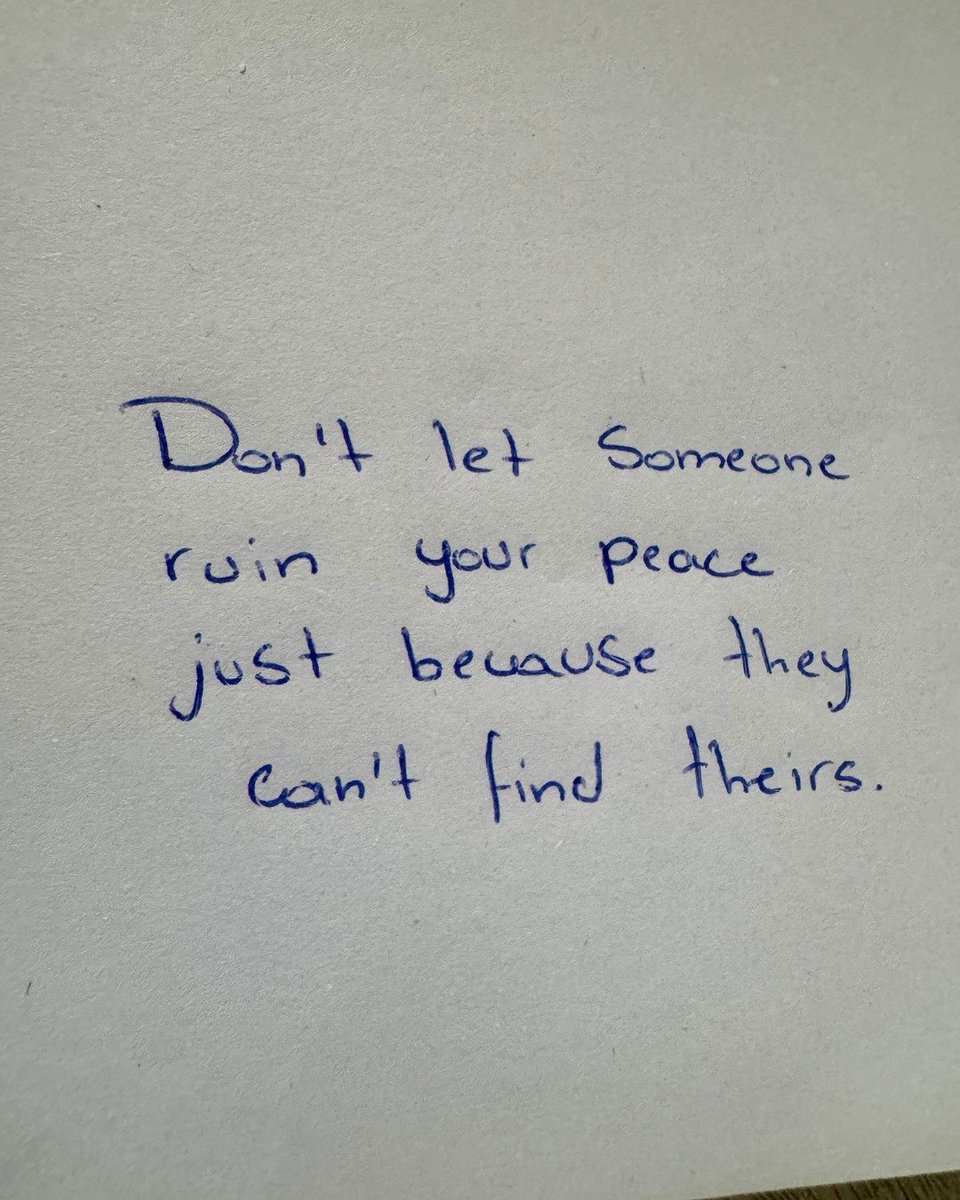 Don't let Someone
ruin your peace
just because they
can't find theirs.